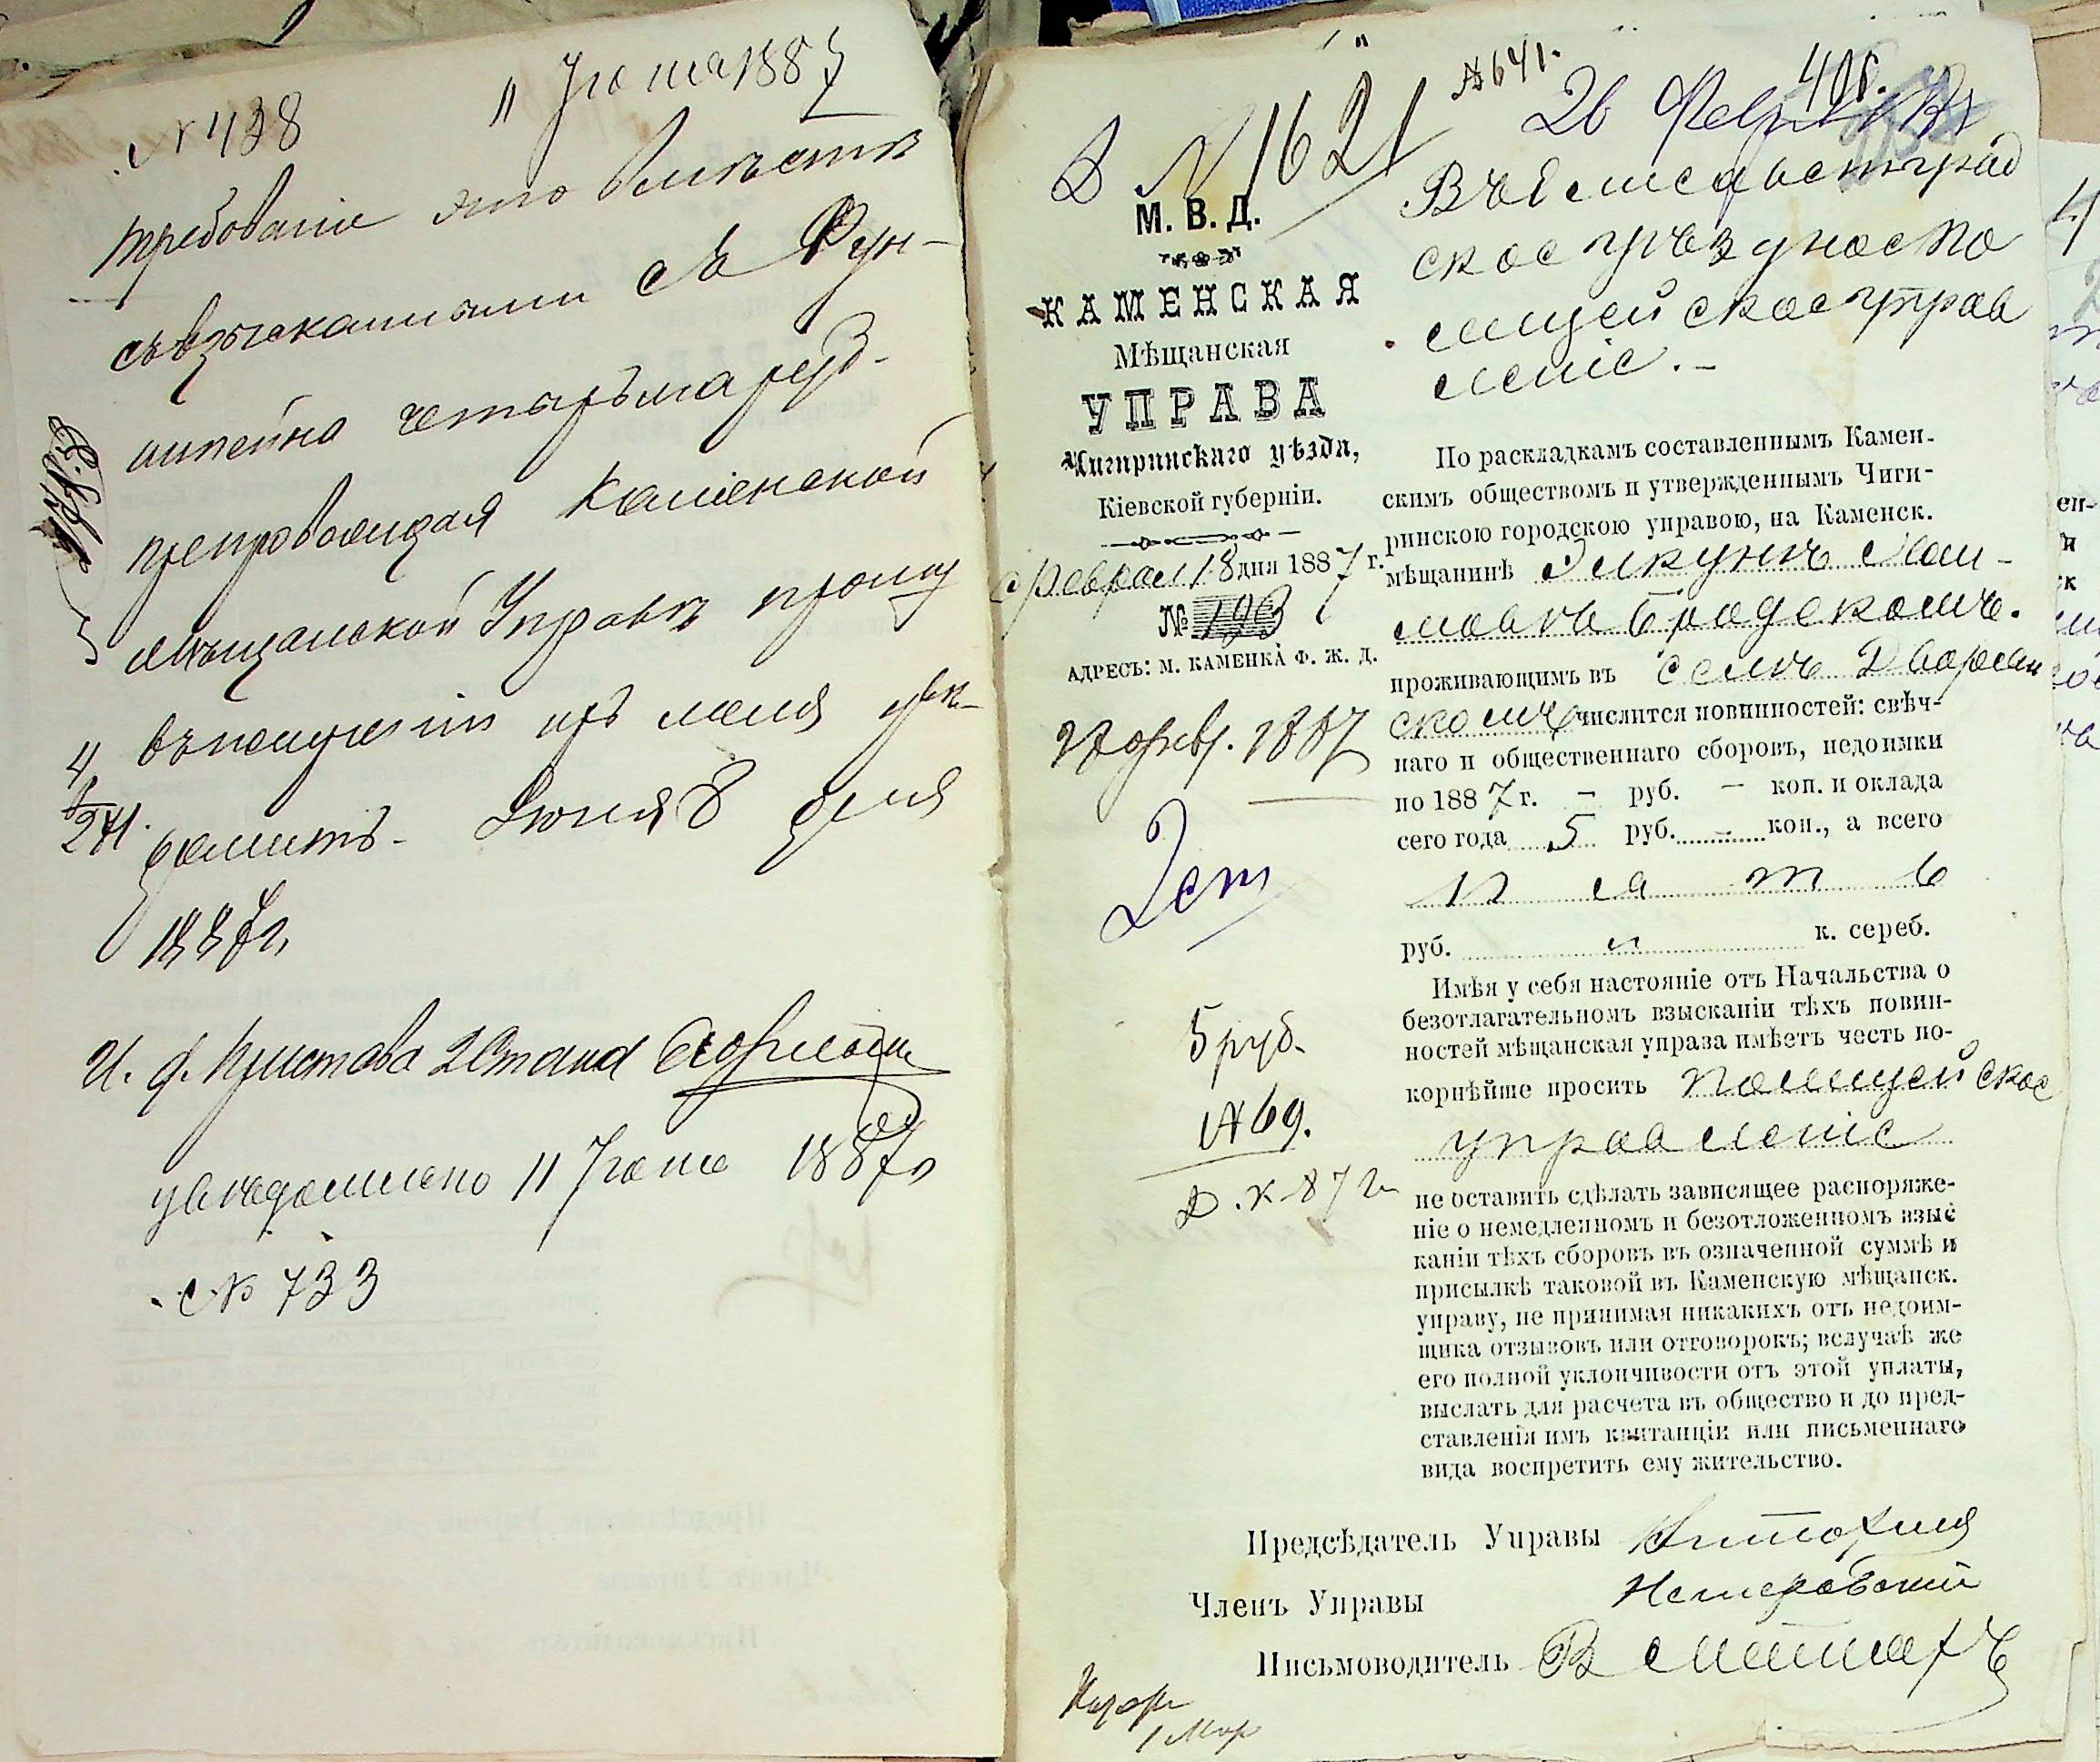 № 438
11 Іюня 1887
требованіе это вмѣстѣ
съ взысканными съ Эун-
четырьма руб.
препровождая Каменской
мѣщанской Управѣ прошу
въ полученіи ихъ меня увѣ-
домить. Іюня 8 дня
1887 г.
И. д. Пристава 2 Стана
увѣдомлено 11 Іюня 1887 г.
№ 733
№ 1621
№ 641.
26 Февр
М. В. Д.
КАМЕНСКАЯ
Мѣщанская
УПРАВА
Чигиринскаго уѣзда,
Кіевской губерніи.
Феврал 18 дня 1887 г.
№ 193
АДРЕСЪ: М. КАМЕНКА Ф. Ж. Д.
27 февр. 1887
2 ст
5 руб.
№ 69.
Въ Елисаветград
ское уѣздное по
лицейское управ
леніе.-
По раскладкамъ составленнымъ Камен-
скимъ обществомъ и утвержденнымъ Чиги-
ринскою городскою управою, на Каменск.
мѣщанинѣ
Бродскомъ.
проживающимъ въ селѣ Дворян
скомъ числится повинностей: свѣч-
наго и общественнаго сборовъ, недоимки
по 1887 г. – руб. – коп. и оклада
сего года 5 руб. – коп., а всего
Пять
руб. " к. сереб.
Имѣя у себя настояніе отъ Начальства о
безотлагательномъ взысканіи тѣхъ повин-
ностей мѣщанская управа имѣетъ честь по-
корнѣйше просить полицейское
управленіе
не оставить сдѣлать зависящее распоряже-
ніе о немедленномъ и безотложенномъ взыс
каніи тѣхъ сборовъ въ означенной суммѣ и
присылкѣ таковой въ Каменскую мѣщанск.
управу, не принимая никакихъ отъ недоим-
щика отзывовъ или отговорокъ; вслучаѣ же
его полной уклончивости отъ этой уплаты,
выслать для расчета въ общество и до пред-
ставленія имъ квитанціи или письменнаго
вида воспретить ему жительство.
Предсѣдатель Управы
Членъ Управы
Письмоводитель